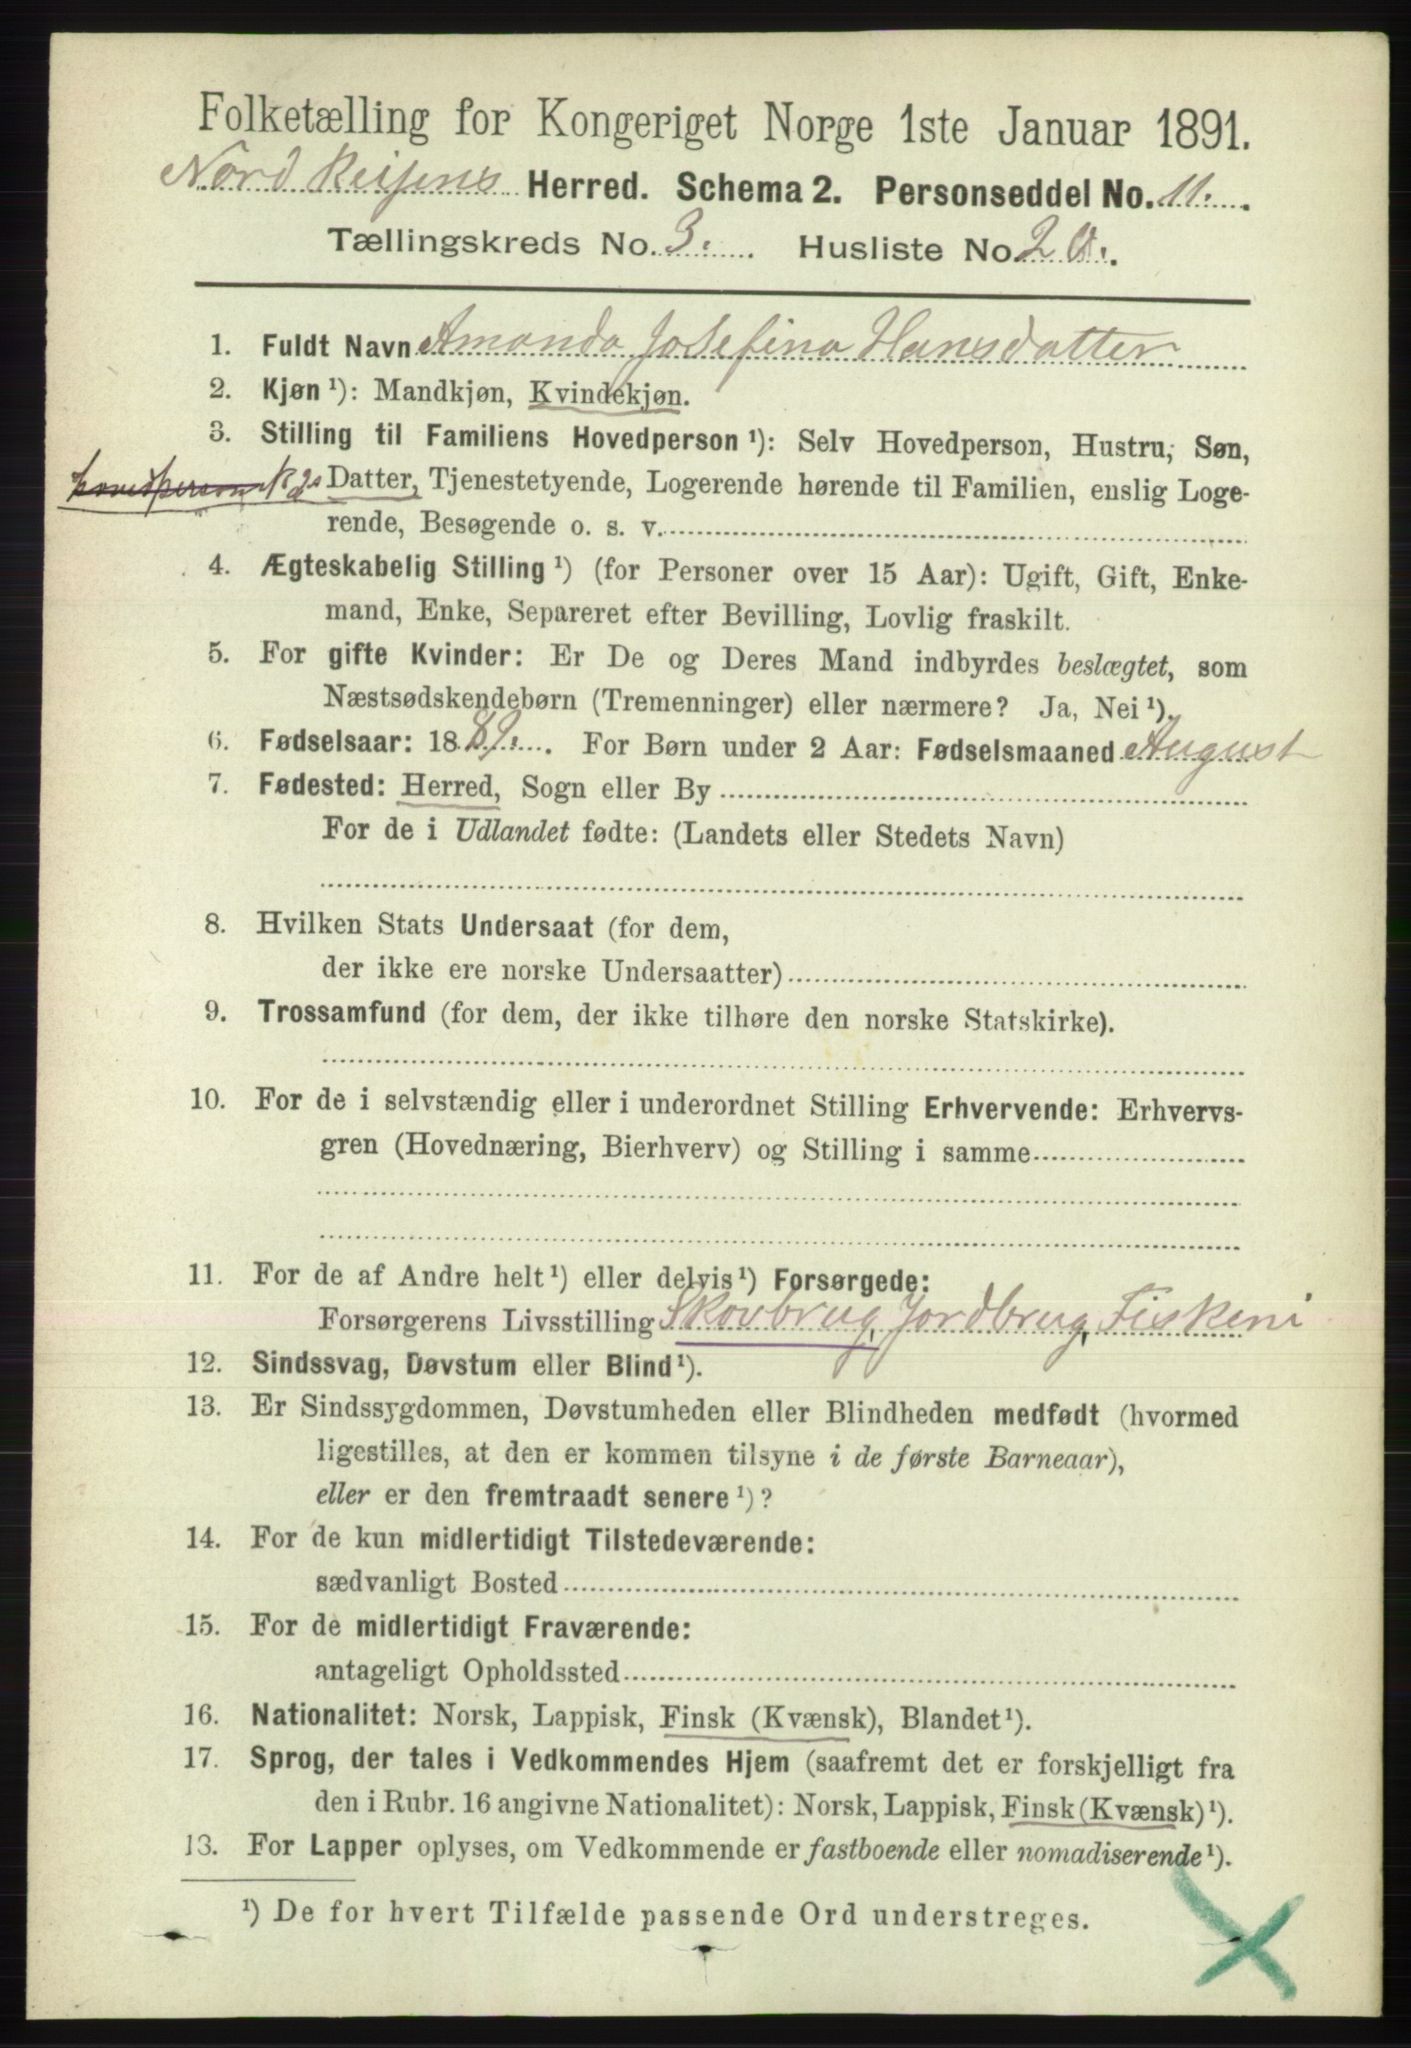 Folketælling for Kongeriget Norge 1ste Januar 1891.
Nord Reisens Herred. Schema 2. Personseddel No. 11.
Tællingskreds No. 3. Husliste No. 20.
1. Fuldt Navn Amanda Josefina Hansdatter
2. Kjøn ¹): Mandkjøn, Kvindekjøn.
3. Stilling til Familiens Hovedperson ¹): Selv Hovedperson, Hustru, Søn,
Datter, Tjenestetyende, Logerende hørende til Familien, enslig Loge-
rende, Besøgende o. s. v.
4. Ægteskabelig Stilling ¹) (for Personer over 15 Aar): Ugift, Gift, Enke-
mand, Enke, Separeret efter Bevilling, Lovlig fraskilt.
5. For gifte Kvinder: Er De og Deres Mand indbyrdes beslægtet, som
Næstsødskendebørn (Tremenninger) eller nærmere? Ja, Nei ¹).
6. Fødselsaar: 1889. For Børn under 2 Aar: Fødselsmaaned August
7. Fødested: Herred, Sogn eller By
For de i Udlandet fødte: (Landets eller Stedets Navn)
8. Hvilken Stats Undersaat (for dem,
der ikke ere norske Undersaatter)
9. Trossamfund (for dem, der ikke tilhøre den norske Statskirke).
10. For de i selvstændig eller i underordnet Stilling Erhvervende: Erhvervs-
gren (Hovednæring, Bierhverv) og Stilling i samme
11. For de af Andre helt ¹) eller delvis ¹) Forsørgede:
Forsørgerens Livsstilling Skovbrug, Jordbrug, Fiskeri
12. Sindssvag, Døvstum eller Blind ¹).
13. Er Sindssygdommen, Døvstumheden eller Blindheden medfødt (hvormed
ligestilles, at den er kommen tilsyne i de første Barneaar),
eller er den fremtraadt senere ¹)?
14. For de kun midlertidigt Tilstedeværende:
sædvanligt Bosted
15. For de midlertidigt Fraværende:
antageligt Opholdssted
16. Nationalitet: Norsk, Lappisk, Finsk (Kvænsk), Blandet ¹).
17. Sprog, der tales i Vedkommendes Hjem (saafremt det er forskjelligt fra
den i Rubr. 16 angivne Nationalitet): Norsk, Lappisk, Finsk (Kvænsk) ¹).
13. For Lapper oplyses, om Vedkommende er fastboende eller nomadiserende ¹).
¹) De for hvert Tilfælde passende Ord understreges.